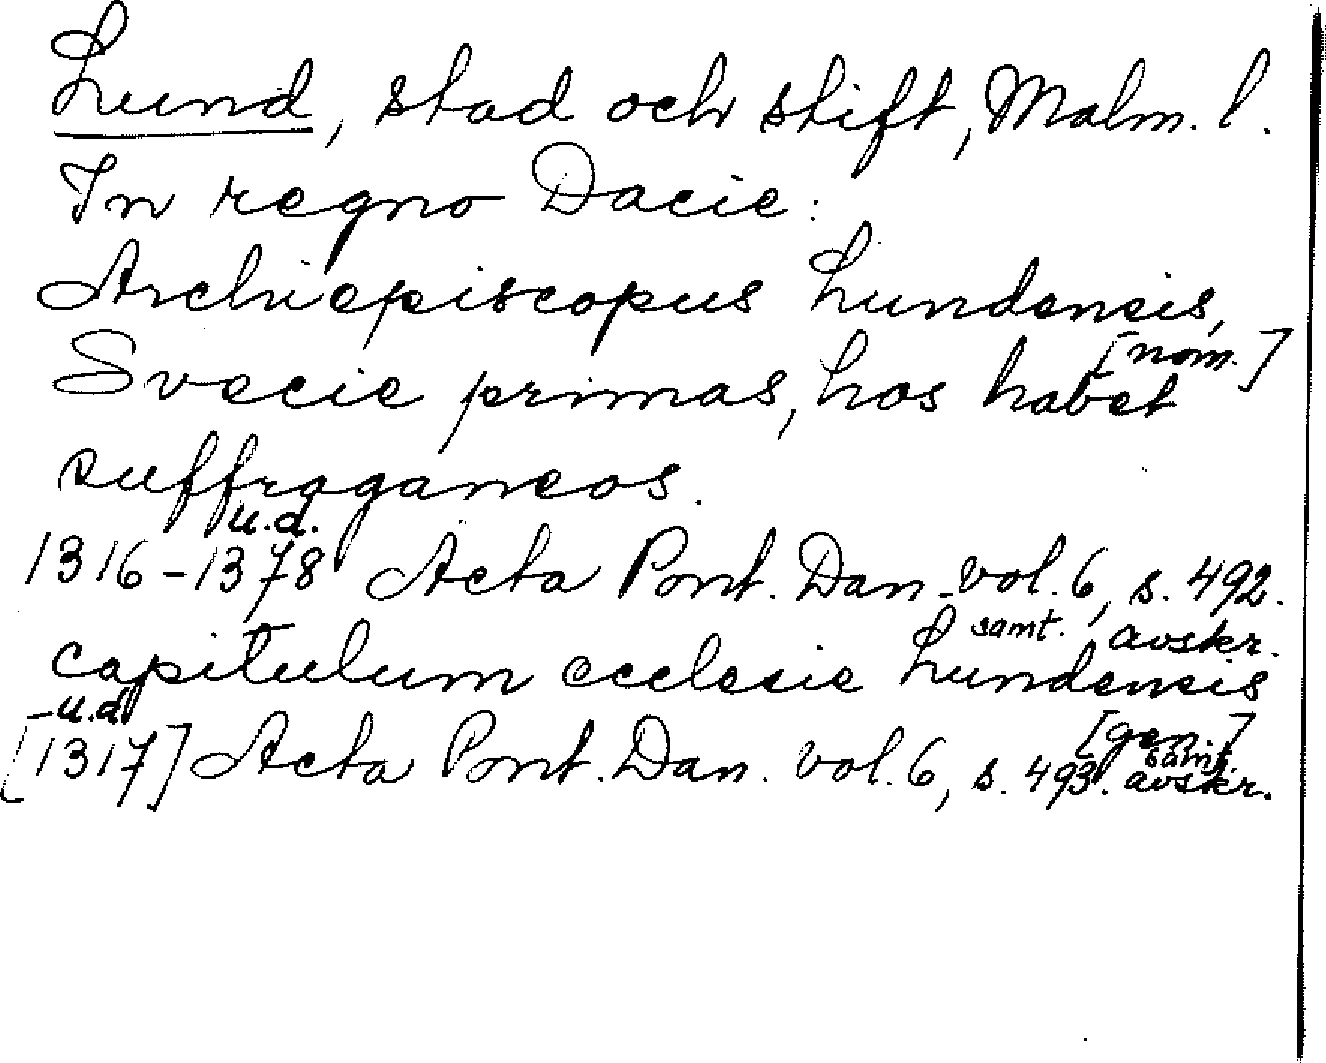 Lund, stad och stift, Malm. l.
In regno Dacie:
Archiepiscopus Lundensis,
[nom.]
Svecie primas, hos habet
suffraganeos.
u.d.
1316-1378 Acta Pont. Dan. vol. 6, s. 492.
samt. avskr.
capitulum ecclesie Lundensis
u.d. [gen.]
[1317] Acta Pont. Dan. vol. 6, s. 493. samt. avskr.